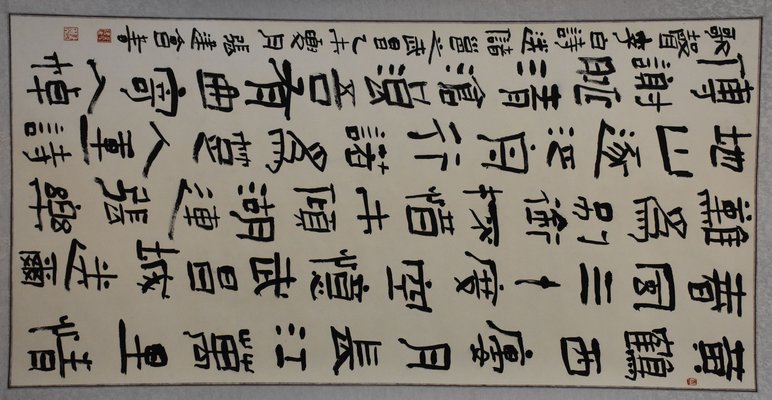 黃鶴西樓月長江萬里情
春風三十度空憶武昌城送爾
難爲別銜杯惜未傾湖連張樂
地山逐泛舟行諾爲楚人重詩
傳謝朓清滄浪吾有曲寄入棹
歌聲 李白詩送儲邕之武昌 乙未夏月 張建會書